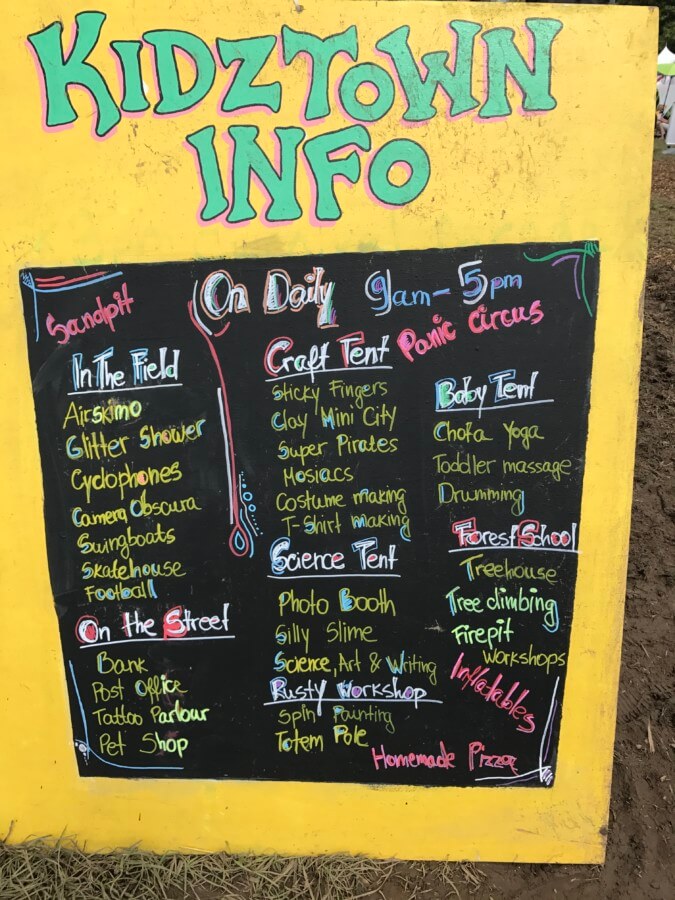 KIDZTOWN
INFO
On Daily 9am-5pm
Sandpit
Panic Circus
In The Field
Airskimo
Glitter Shower
Cyclophones
Camera Obscura
Swingboats
Skatehouse
Football
On the Street
Bank
Post Office
Tattoo Parlour
Pet Shop
Craft Tent
Sticky Fingers
Clay Mini City
Super Pirates
Mosiacs
Costume making
T-Shirt making
Science Tent
Photo Booth
Silly Slime
Science, Art & Writing
Rusty Workshop
Spin Painting
Totem Pole
Baby Tent
Chota Yoga
Toddler massage
Drumming
Forest School
Treehouse
Tree climbing
Firepit
Workshops
Inflatables
Homemade Pizza